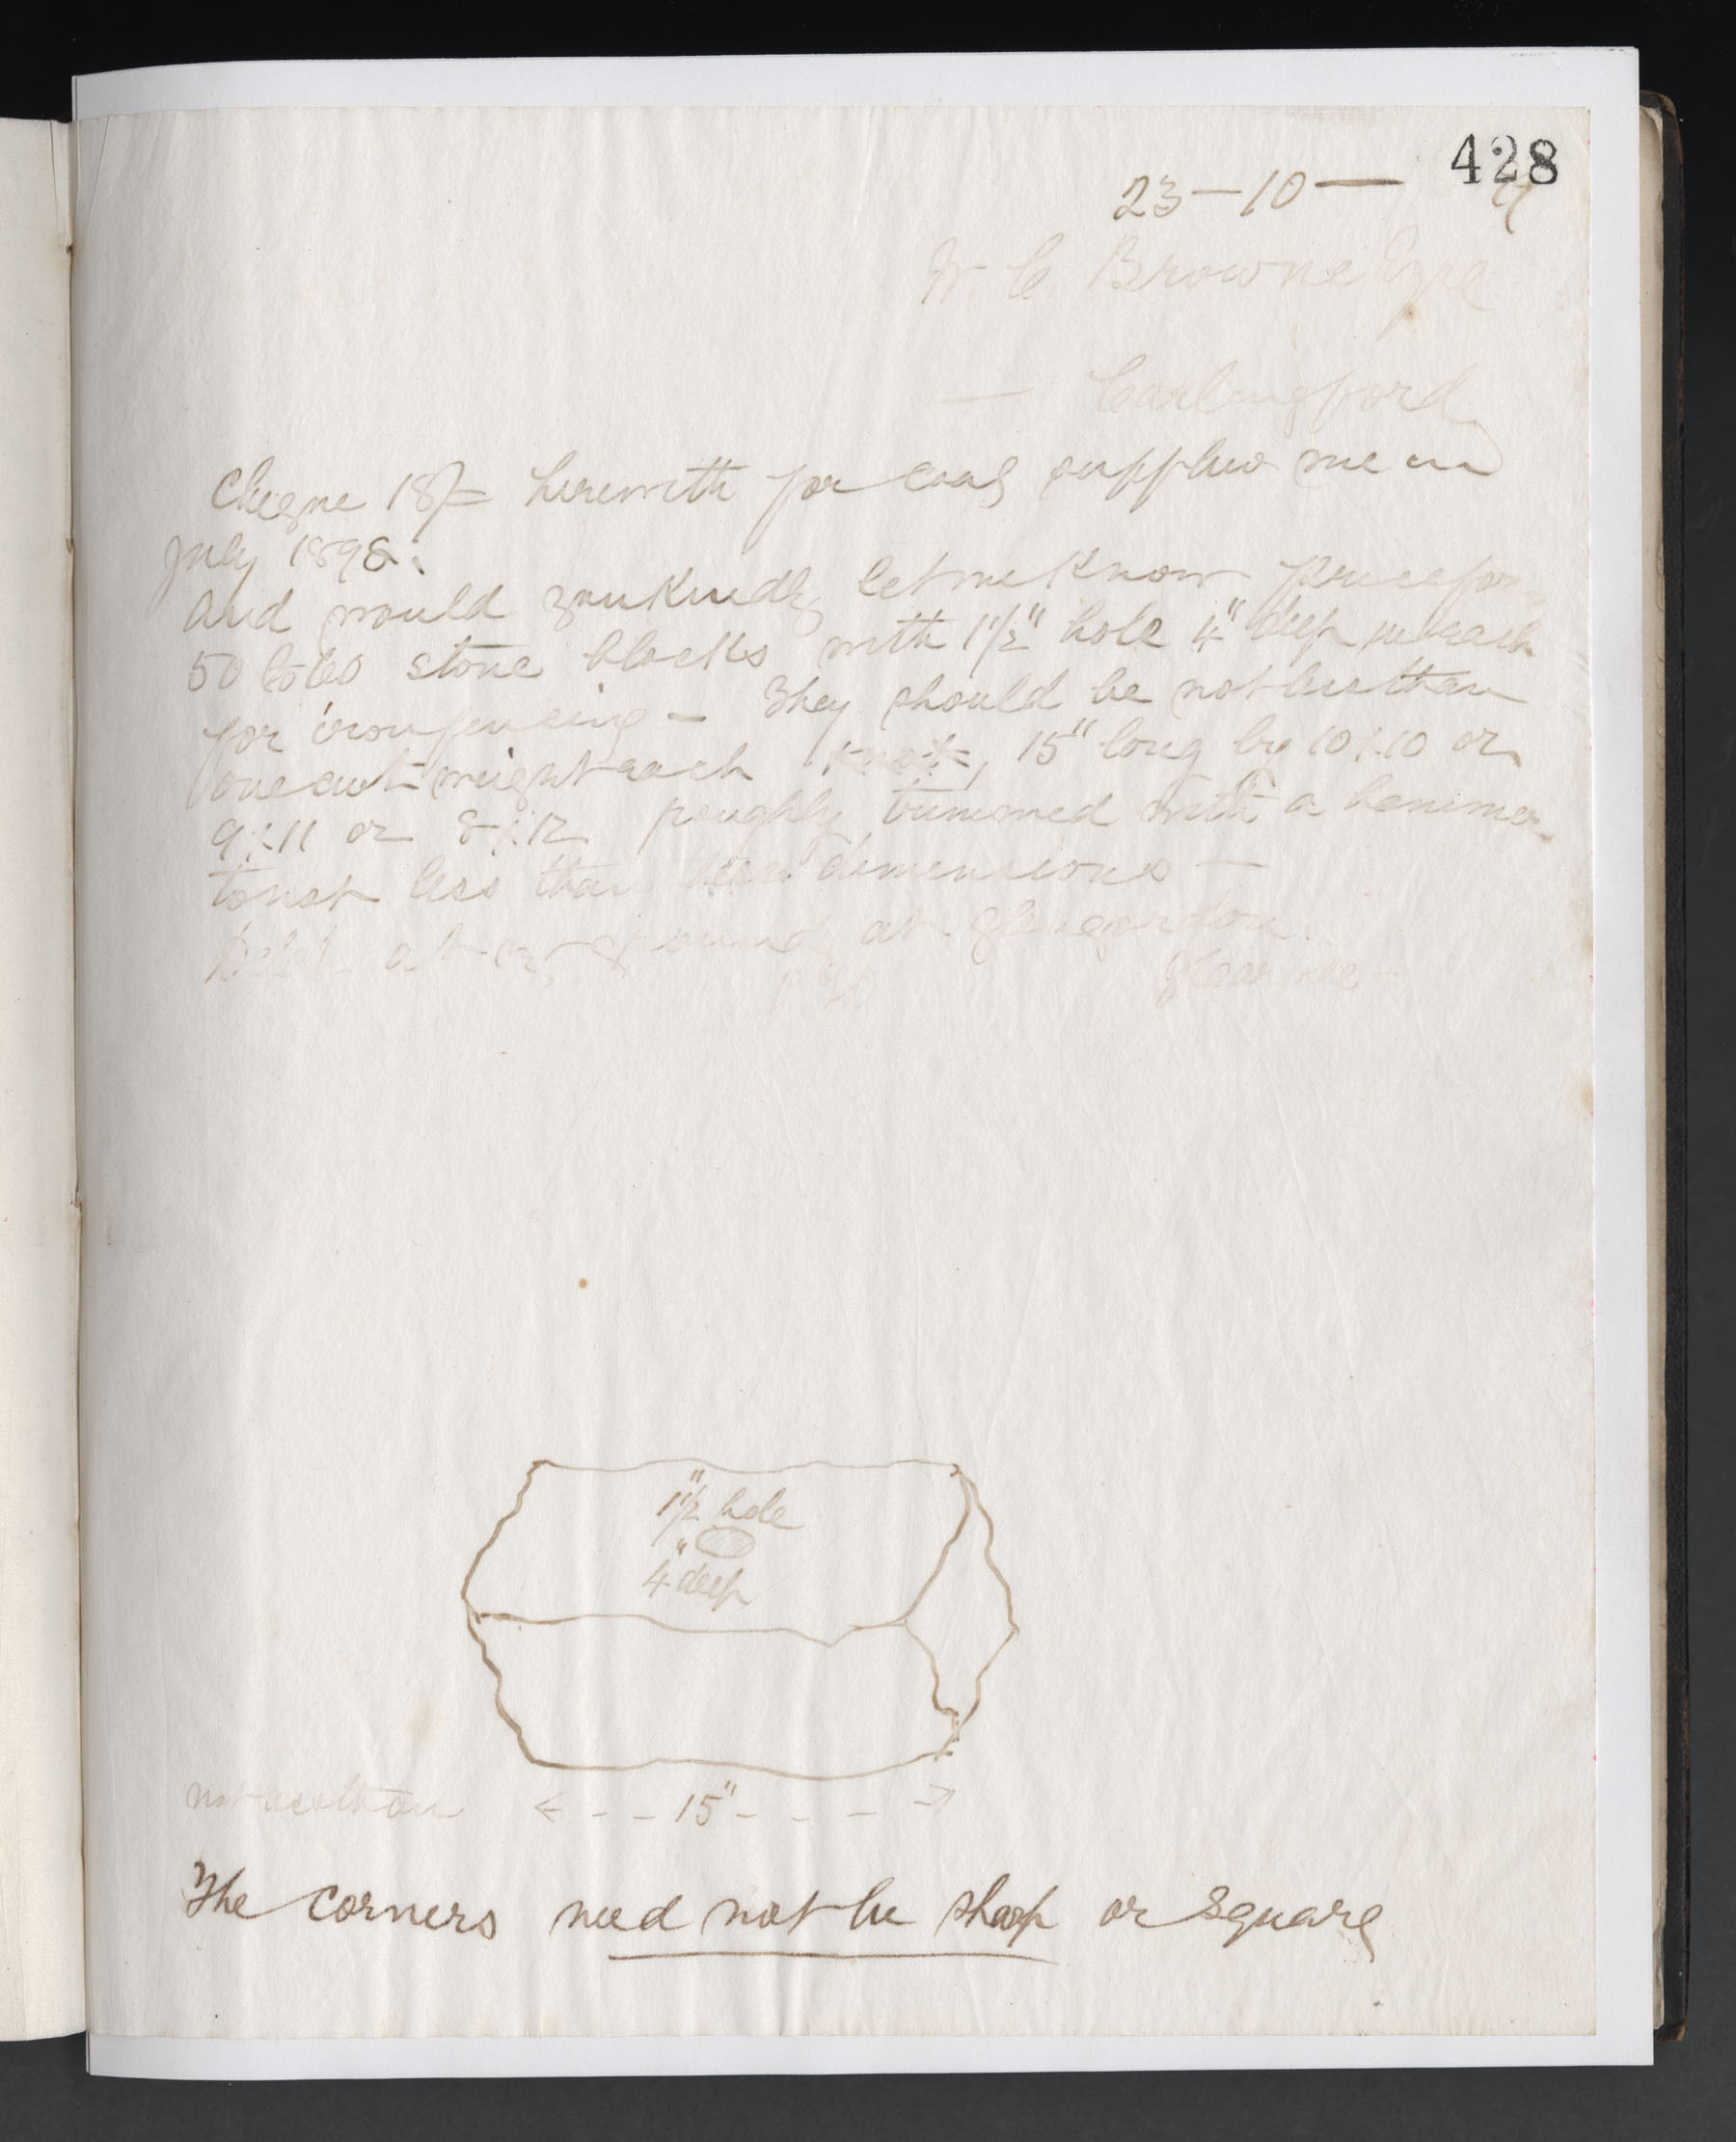 428
23-10-
W. C. Browne Esqre
- Carlingford
Cheqne 18/= herewith for coal supplied me in
July 1898.
And would you kindly let me know price for
50 to 60 stone blocks with 1 1/2" hole 4" deep in each
for iron fencing - They should be not less than
one cwt weight each 15" long by 10 x 10 or
9 x 11 or 8 x 12 roughly trimmed with a hammer
to not less than these dimensions -
at ground at
1 1/2" hole
4" deep
not less than <- - - 15" - - - ->
The corners need not be sharp or square